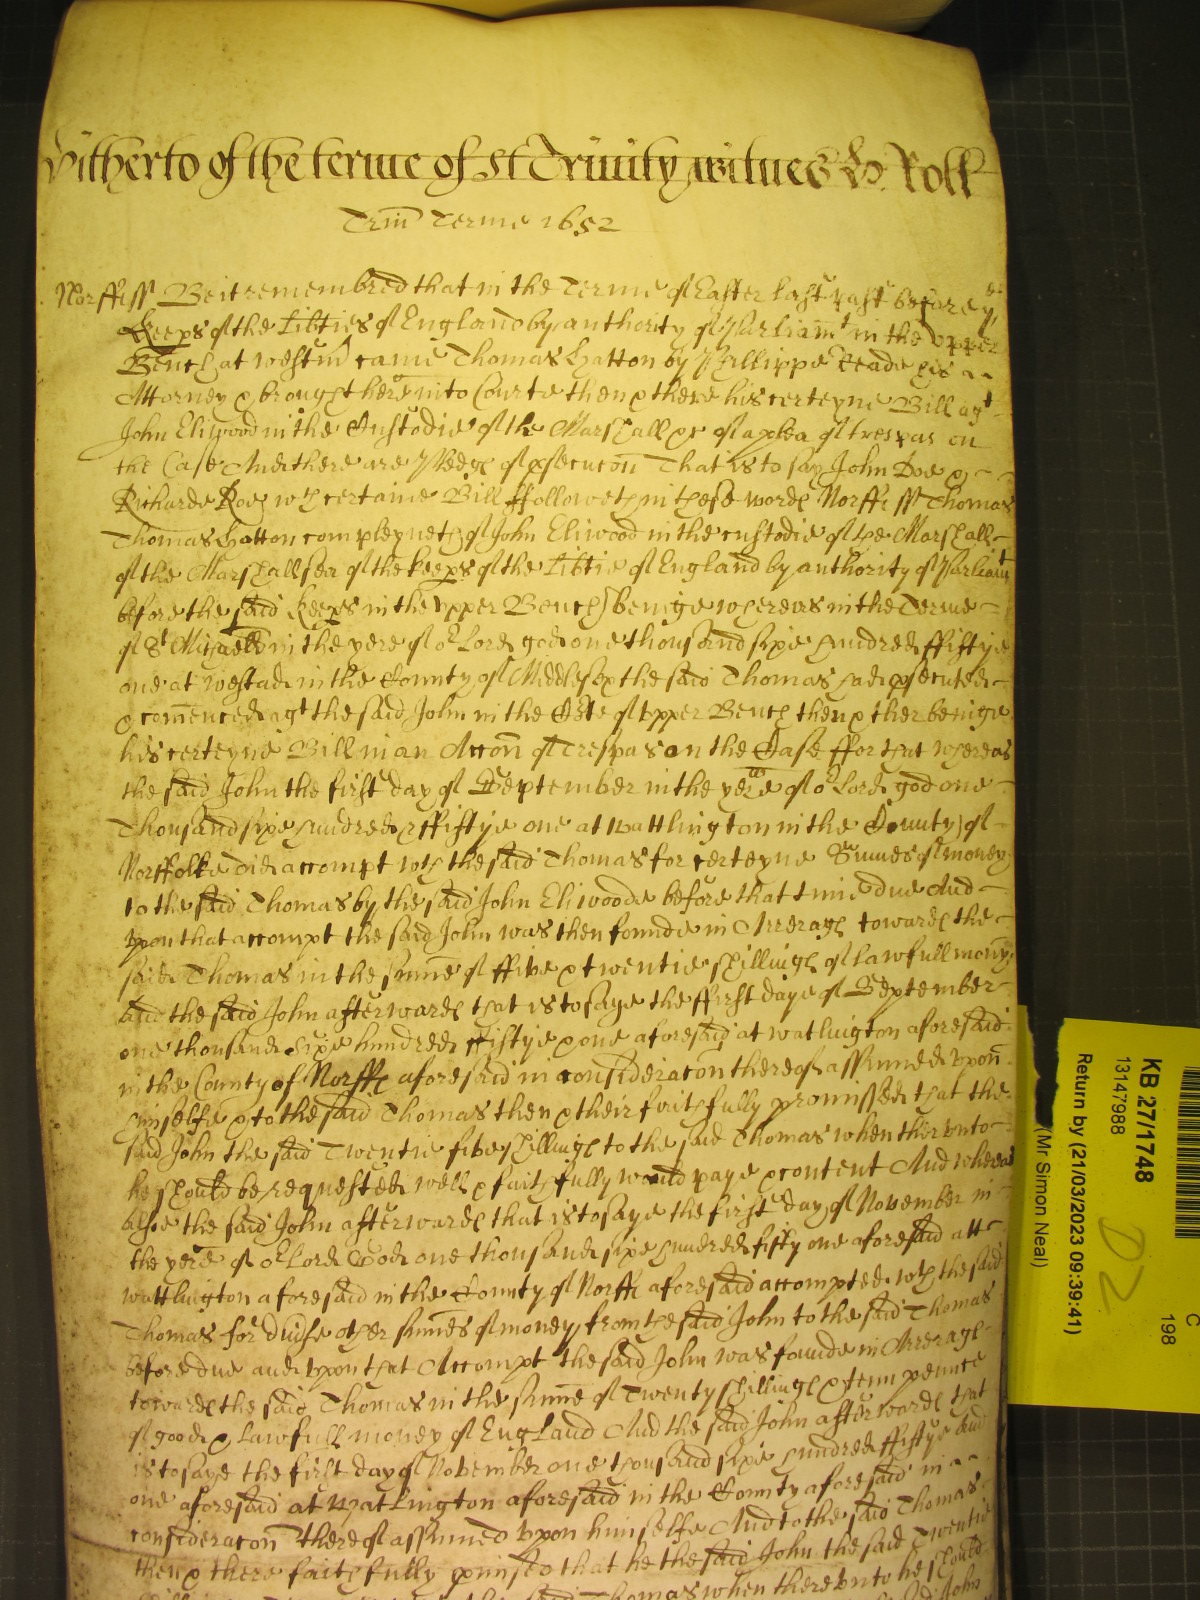 Hitherto of the terme of St Trinity witnes & Roll
Trin Terme 1652
Norff ss Be it remembred that in the Terme of Easter last past before ye
keeps of the Libties of England by authority of Parliamt in the Upper
Bench at westm came Thomas Hatton by Phillippe Reade his
Attorney & brought here into Courte then & there his certeyne Bill agt
John Eliwood in the Custodie of the Marshall &c of a plea of trespas on
the Case And there are Pledge of psecucon That is to say John Doe &
Richarde Roe wch certaine Bill ffolloweth in these wordes Norff ss Thomas
Thomas Hatton compleyneth of John Eliwood in the custodie of the Marshall
of the Marshallsea of the keeps of the Libtie of England by authority of Parliamt
before the said keeps in the Upper Bench beinge whereas in the Terme
of St Michaell in the yere of or Lord god one thousand sixe hundred ffiftye
one at westm in the County of Middlesex the said Thomas had psecuted
& comenced agt the said John in the Cote of Upper Bench then & ther beinge
his certeyne Bill in an Accon of Trespas on the Case ffor that whereas
the said John the first day of September in the yere of or Lord god one
Thousand sixe hundred & ffiftye one at Wattlington in the County of
Norffolke did accompt wth the said Thomas for certeyne Sumes of money
to the said Thomas by the said John Eliwoode before that time due And
upon that accompt the said John was then founde in Arrerages towardes the
said Thomas in the sume of ffive & twentie shillinges of lawfull mony
and the said John afterwardes that is to saye the ffirst daye of September
one thousand sixe hundred ffiftye & one aforesaid at watlington aforesaid
in the County of Norff aforesaid in consideracon thereof assumed upon
himselfe & to the said Thomas then & their faithfully promissed that the
said John the said Twentie five shillinges to the said Thomas when therunto
he should be requested well & faithfully would paye & content And whereas
alsoe the said John afterwardes that is to saye the first day of November in
the yere of or Lord God one thousand sixe hundred fifty one aforesaid att
wattlington aforesaid in the County of Norff aforesaid accompted wth the said
Thomas for divse other sumes of money from the said John to the said Thomas
before due and upon that Accompt the said John was founde in Arrerages
towardes the said Thomas in the sume of Twenty shillinges & tenn pennce
of good & lawfull money of England And the said John afterwardes that
is to saye the first day of November one thousand sixe hundred ffiftye and
one aforesaid at Watlington aforesaid in the County aforesaid in
consideracon thereof assumed upon himselfe And to the said Thomas
then & there faithfully pmised that he the said John the said Twentie
Thomas when thereunto he should
said John
KB 27/1748
13147988
Return by (21/03/2023 09:39:41)
(Mr Simon Neal)
C
198
D2